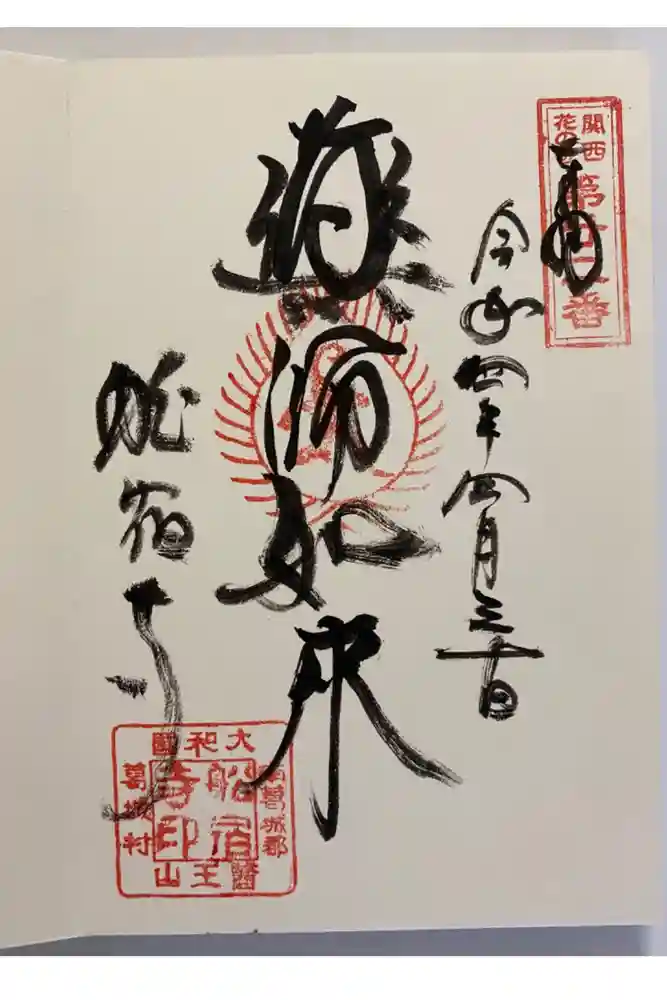 関西
花の寺
第廿二番
奉拝
令和四年四月三十日
薬師如来
船宿寺
大和國
南葛城郡
葛城村
醫王山
船宿
寺印